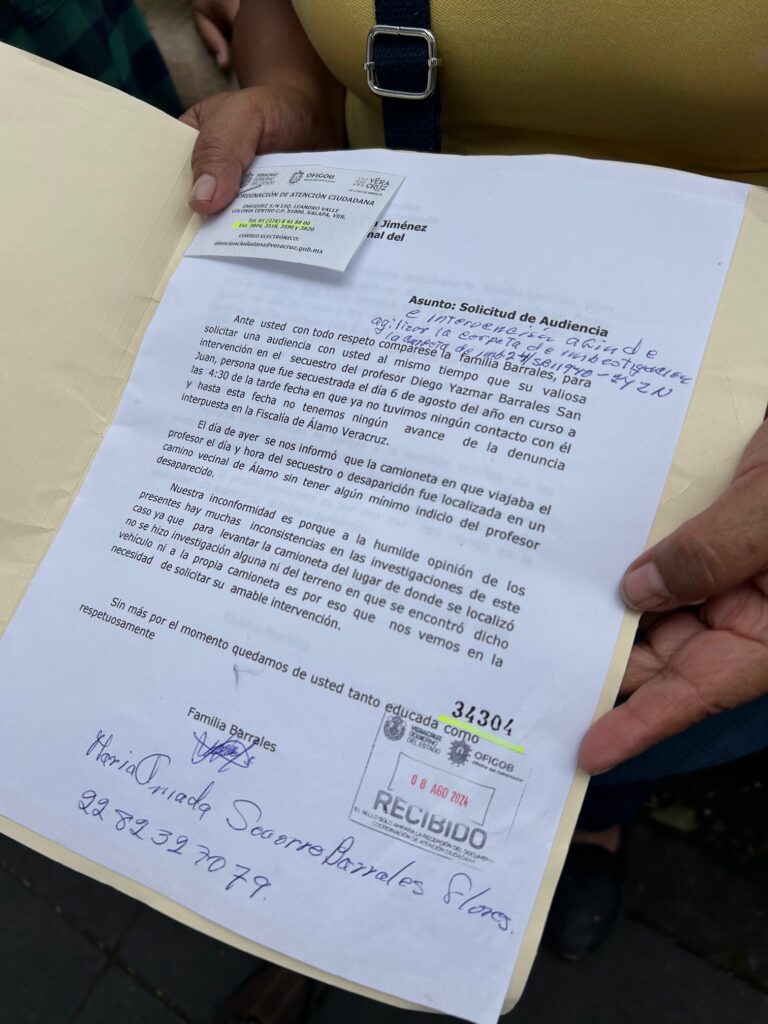 VERACRUZ
GOBIERNO
DEL ESTADO
OFIGOB
VERA
CRUZ
COORDINACIÓN DE ATENCIÓN CIUDADANA
ENRIQUEZ S/N ESQ. LEANDRO VALLE
COLONIA CENTRO C.P. 91000, XALAPA, VER.
Tel. 01 (228) 8 41 88 00
Ext. 3804, 3518, 3590 y 3820
CORREO ELECTRÓNICO:
atencionciudadana@veracruz.gob.mx
Jiménez
nal del
Asunto: Solicitud de Audiencia
e intervención a fin de
agilizar la carpeta de
la carpeta de
Ante usted con todo respeto comparese la familia Barrales, para
solicitar una audiencia con usted al mismo tiempo que su valiosa
intervención en el secuestro del profesor Diego Yazmar Barrales San
Juan, persona que fue secuestrada el día 6 de agosto del año en curso a
las 4:30 de la tarde fecha en que ya no tuvimos ningún contacto con él
y hasta esta fecha no tenemos ningún avance de la denuncia
interpuesta en la Fiscalía de Álamo Veracruz.
El día de ayer se nos informó que la camioneta en que viajaba el
profesor el día y hora del secuestro o desaparición fue localizada en un
camino vecinal de Álamo sin tener algún mínimo indicio del profesor
desaparecido.
Nuestra inconformidad es porque a la humilde opinión de los
presentes hay muchas inconsistencias en las investigaciones de este
caso ya que para levantar la camioneta del lugar de donde se localizó
no se hizo investigación alguna ni del terreno en que se encontró dicho
vehículo ni a la propia camioneta es por eso que nos vemos en la
necesidad de solicitar su amable intervención.
Sin más por el momento quedamos de usted tanto educada como
respetuosamente
34304
Familia Barrales
VERACRUZ
GOBIERNO
DEL ESTADO
OFIGOB
Oficina del Gobernador
08 AGO 2024
RECIBIDO
EL SELLO SOLO AMPARA LA RECEPCIÓN DEL DOCUMENTO
COORDINACIÓN DE ATENCIÓN CIUDADANA
Maria Socorro Barrales Flores.
2282327079.